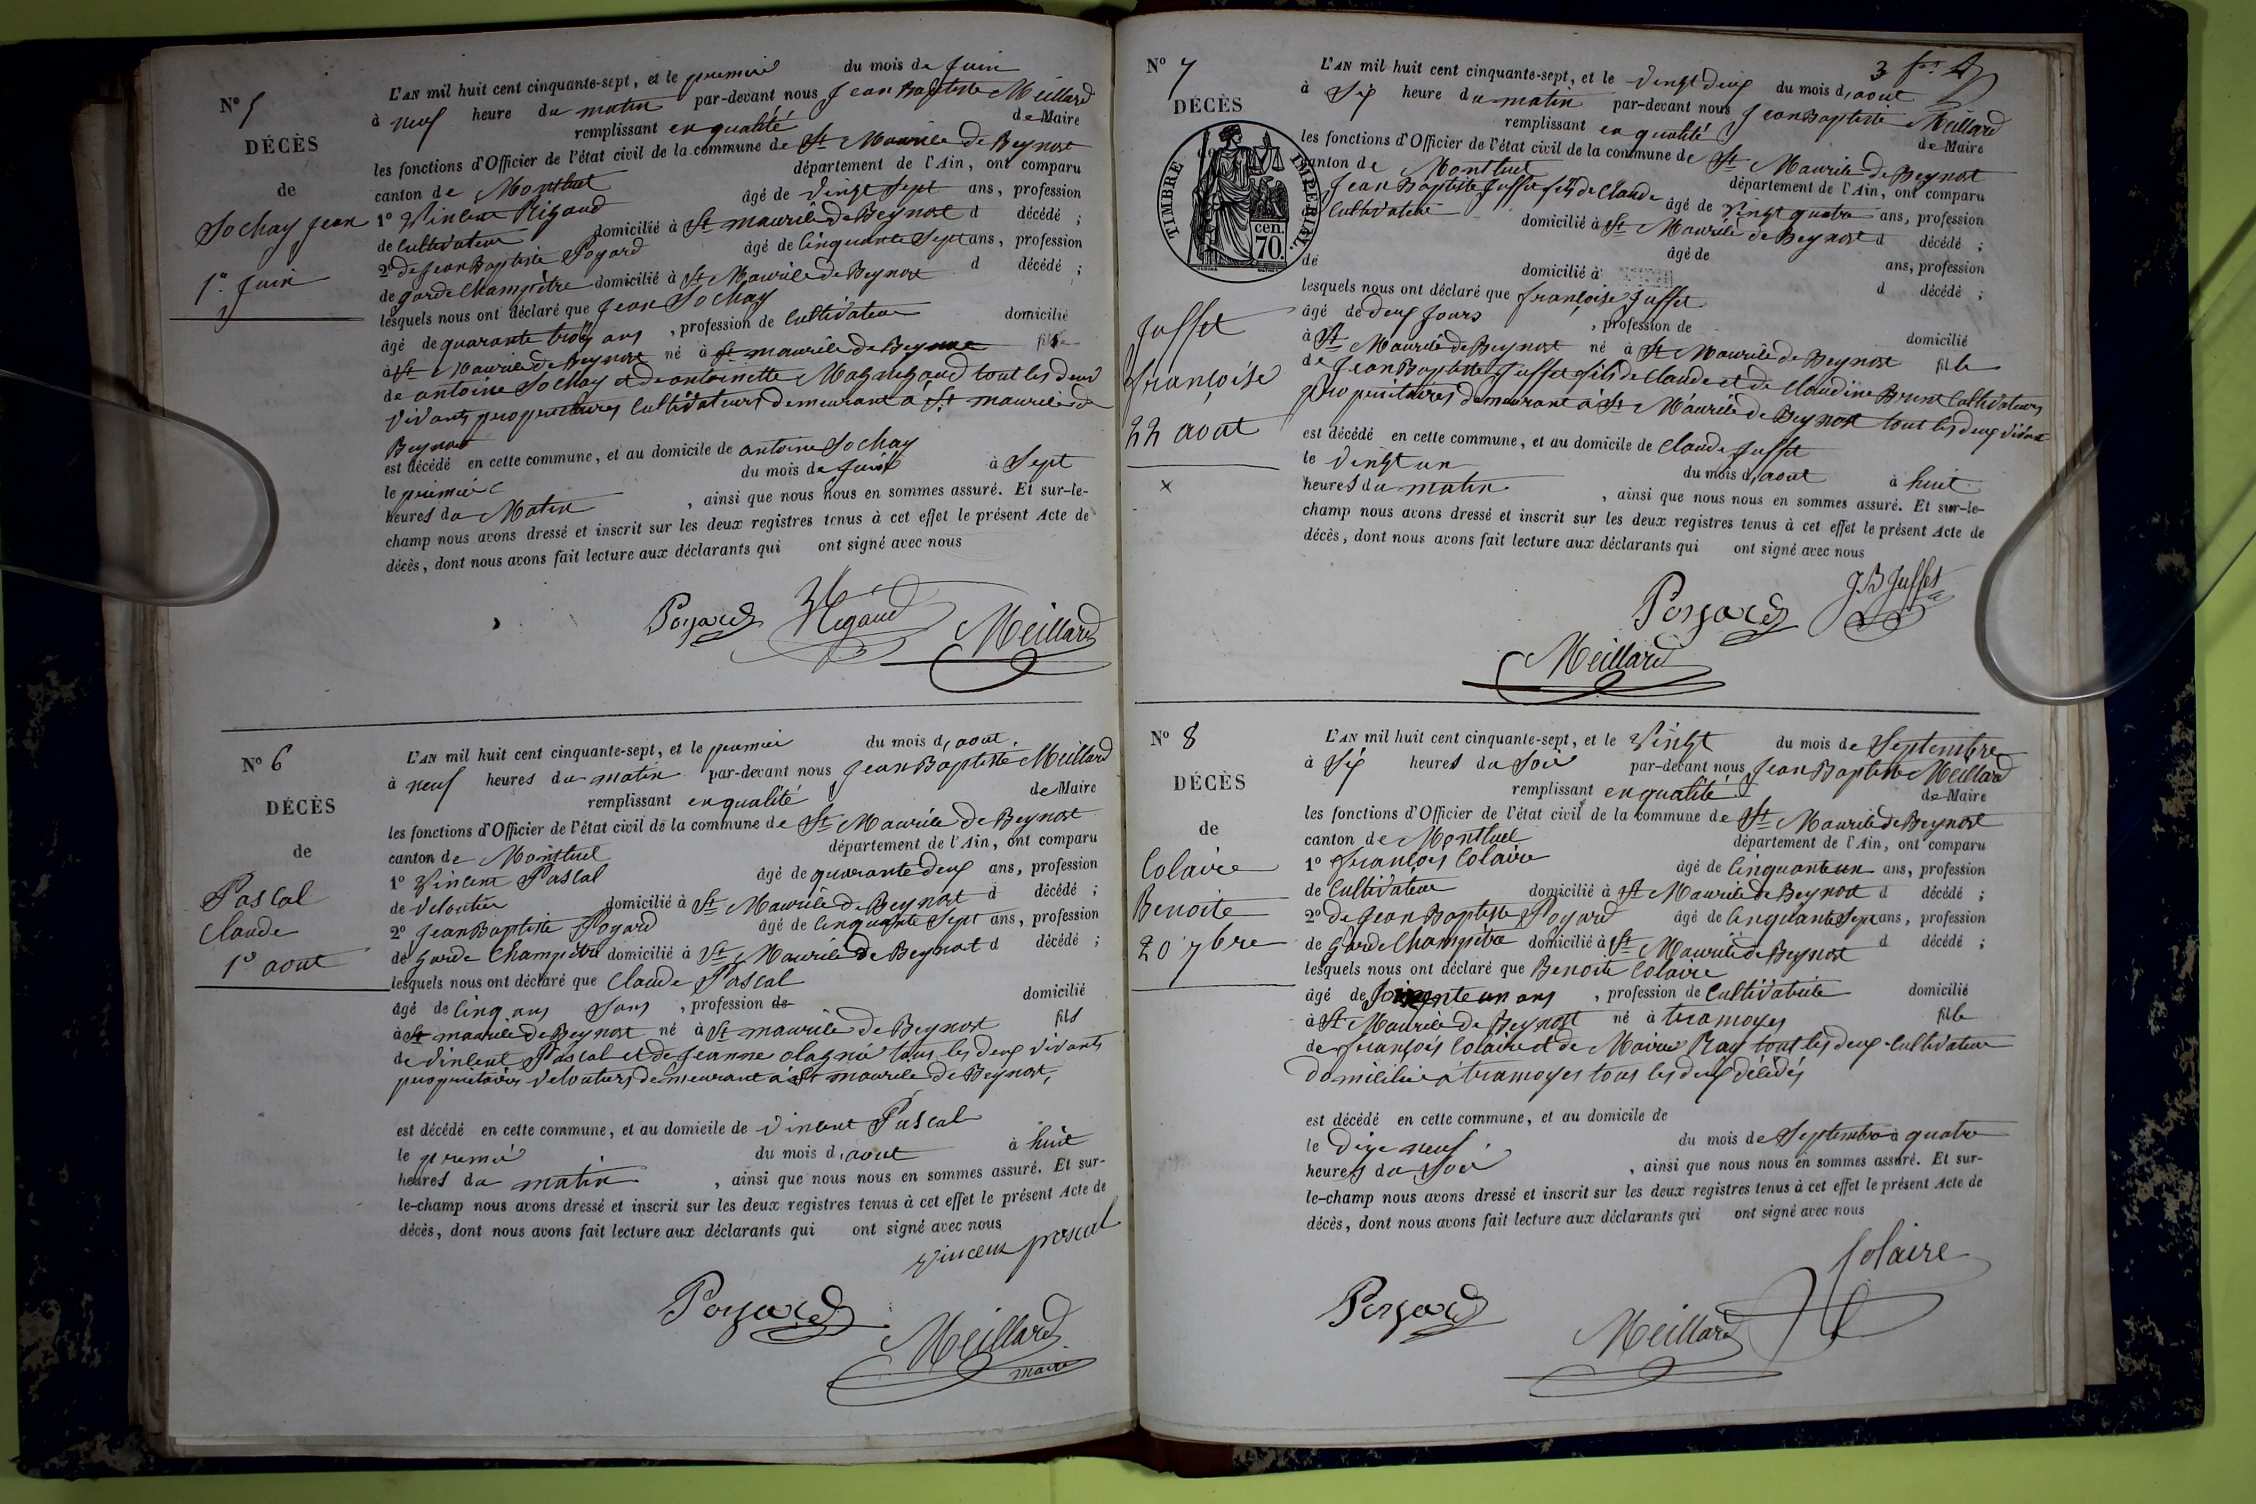 N° 5
DÉCÈS
de
Sochay Jean
1er Juin
L'AN mil huit cent cinquante-sept, et le premier du mois de Juin
à neuf heure du matin par-devant nous Jean Baptiste Meillard
remplissant en qualité de Maire
les fonctions d'Officier de l'état civil de la commune de St Maurice de Beynost
canton de Montluel département de l'Ain, ont comparu
1° Vincent Rigaud âgé de vingt sept ans, profession
de Cultivateur domicilié à St maurice de Beynost d décédé ;
2° de Jean Baptiste Poyard âgé de Cinquante Sept ans, profession
de garde Champêtre domicilié à St Maurice de Beynost d décédé ;
lesquels nous ont déclaré que Jean Sochay
âgé de quarante trois ans , profession de Cultivateur domicilié
à St Maurice de Beynost né à St maurice de Beynost fils
de antoine Sochay et de antoinette tout les deux
vivants propriétaires Cultivateurs demeurant à St maurice de
Beynost
est décédé en cette commune, et au domicile de antoine Sochay
le premier du mois de Juin à Sept
heures du Matin , ainsi que nous nous en sommes assuré. Et sur-le-
champ nous avons dressé et inscrit sur les deux registres tenus à cet effet le présent Acte de
décès, dont nous avons fait lecture aux déclarants qui ont signé avec nous
Poyard Rigaud Meillard
N° 6
DÉCÈS
de
Pascal
Claude
1er aout
L'AN mil huit cent cinquante-sept, et le premier du mois d'aout
à neuf heures du matin par-devant nous Jean Baptiste Meillard
remplissant en qualité de Maire
les fonctions d'Officier de l'état civil de la commune de St Maurice de Beynost
canton de Montluel département de l'Ain, ont comparu
1° Vincent Pascal âgé de quarante deux ans, profession
de Veloutier domicilié à St Maurice de Beynost d décédé ;
2° Jean Baptiste Poyard âgé de Cinquante Sept ans, profession
de Garde Champêtre domicilié à St Maurice de Beynost d décédé ;
lesquels nous ont déclaré que Claude Pascal
âgé de Cinq ans Sans , profession de domicilié
à St maurice de Beynost né à St maurice de Beynost fils
de Vincent Pascal et de Jeanne olagnié tous les deux vivants
propriétaires Veloutiers demeurant à St maurice de Beynost,
est décédé en cette commune, et au domicile de Vincent Pascal
le premier du mois d'aout à huit
heures du matin , ainsi que nous nous en sommes assuré. Et sur-
le-champ nous avons dressé et inscrit sur les deux registres tenus à cet effet le présent Acte de
décès, dont nous avons fait lecture aux déclarants qui ont signé avec nous
Vincent pascal
Poyard Meillard
maire
3
N° 7
DÉCÈS
TIMBRE IMPÉRIAL
cen.
70.
Juffet
françoise
22 aout
x
L'AN mil huit cent cinquante-sept, et le vingt deux du mois d'aout
à Six heure du matin par-devant nous Jean Baptiste Meillard
remplissant en qualité de Maire
les fonctions d'Officier de l'état civil de la commune de St Maurice de Beynost
canton de Montluel département de l'Ain, ont comparu
Jean Baptiste Juffet fils de Claude âgé de vingt quatre ans, profession
Cultivateur domicilié à St Maurice de Beynost d décédé ;
âgé de ans, profession
de domicilié à d décédé ;
lesquels nous ont déclaré que françoise Juffet
âgé de deux Jours , profession de domicilié
à St Maurice de Beynost né à St Maurice de Beynost fille
de Jean Baptiste Juffet fils de Claude et de Claudine Brunet Cultivateurs
propriétaires demeurant à St Maurice de Beynost tout les deux vivant
est décédé en cette commune, et au domicile de Claude Juffet
le vingt un du mois d'aout à huit
heures du matin , ainsi que nous nous en sommes assuré. Et sur-le-
champ nous avons dressé et inscrit sur les deux registres tenus à cet effet le présent Acte de
décès, dont nous avons fait lecture aux déclarants qui ont signé avec nous
Poyard JB Juffet
Meillard
N° 8
DÉCÈS
de
Colaire
Benoite
20 7bre
L'AN mil huit cent cinquante-sept, et le Vingt du mois de Septembre
à Six heures du Soir par-devant nous Jean Baptiste Meillard
remplissant en qualité de Maire
les fonctions d'Officier de l'état civil de la commune de St Maurice de Beynost
canton de Montluel département de l'Ain, ont comparu
1° François Colaire âgé de Cinquante un ans, profession
de Cultivateur domicilié à St Maurice de Beynost d décédé ;
2° de Jean Baptiste Poyard âgé de Cinquante Sept ans, profession
de Garde Champêtre domicilié à St Maurice de Beynost d décédé ;
lesquels nous ont déclaré que Benoite Colaire
âgé de Soixante un ans , profession de Cultivatrice domicilié
à St Maurice de Beynost né à tramoyes fille
de François Colaire et de Marie Ray tout les deux Cultivateur
domicilié à tramoyes tous les deux décédés
est décédé en cette commune, et au domicile de
le Dix neuf du mois de Septembre à quatre
heures du Soir , ainsi que nous nous en sommes assuré. Et sur-
le-champ nous avons dressé et inscrit sur les deux registres tenus à cet effet le présent Acte de
décès, dont nous avons fait lecture aux déclarants qui ont signé avec nous
Colaire
Poyard Meillard